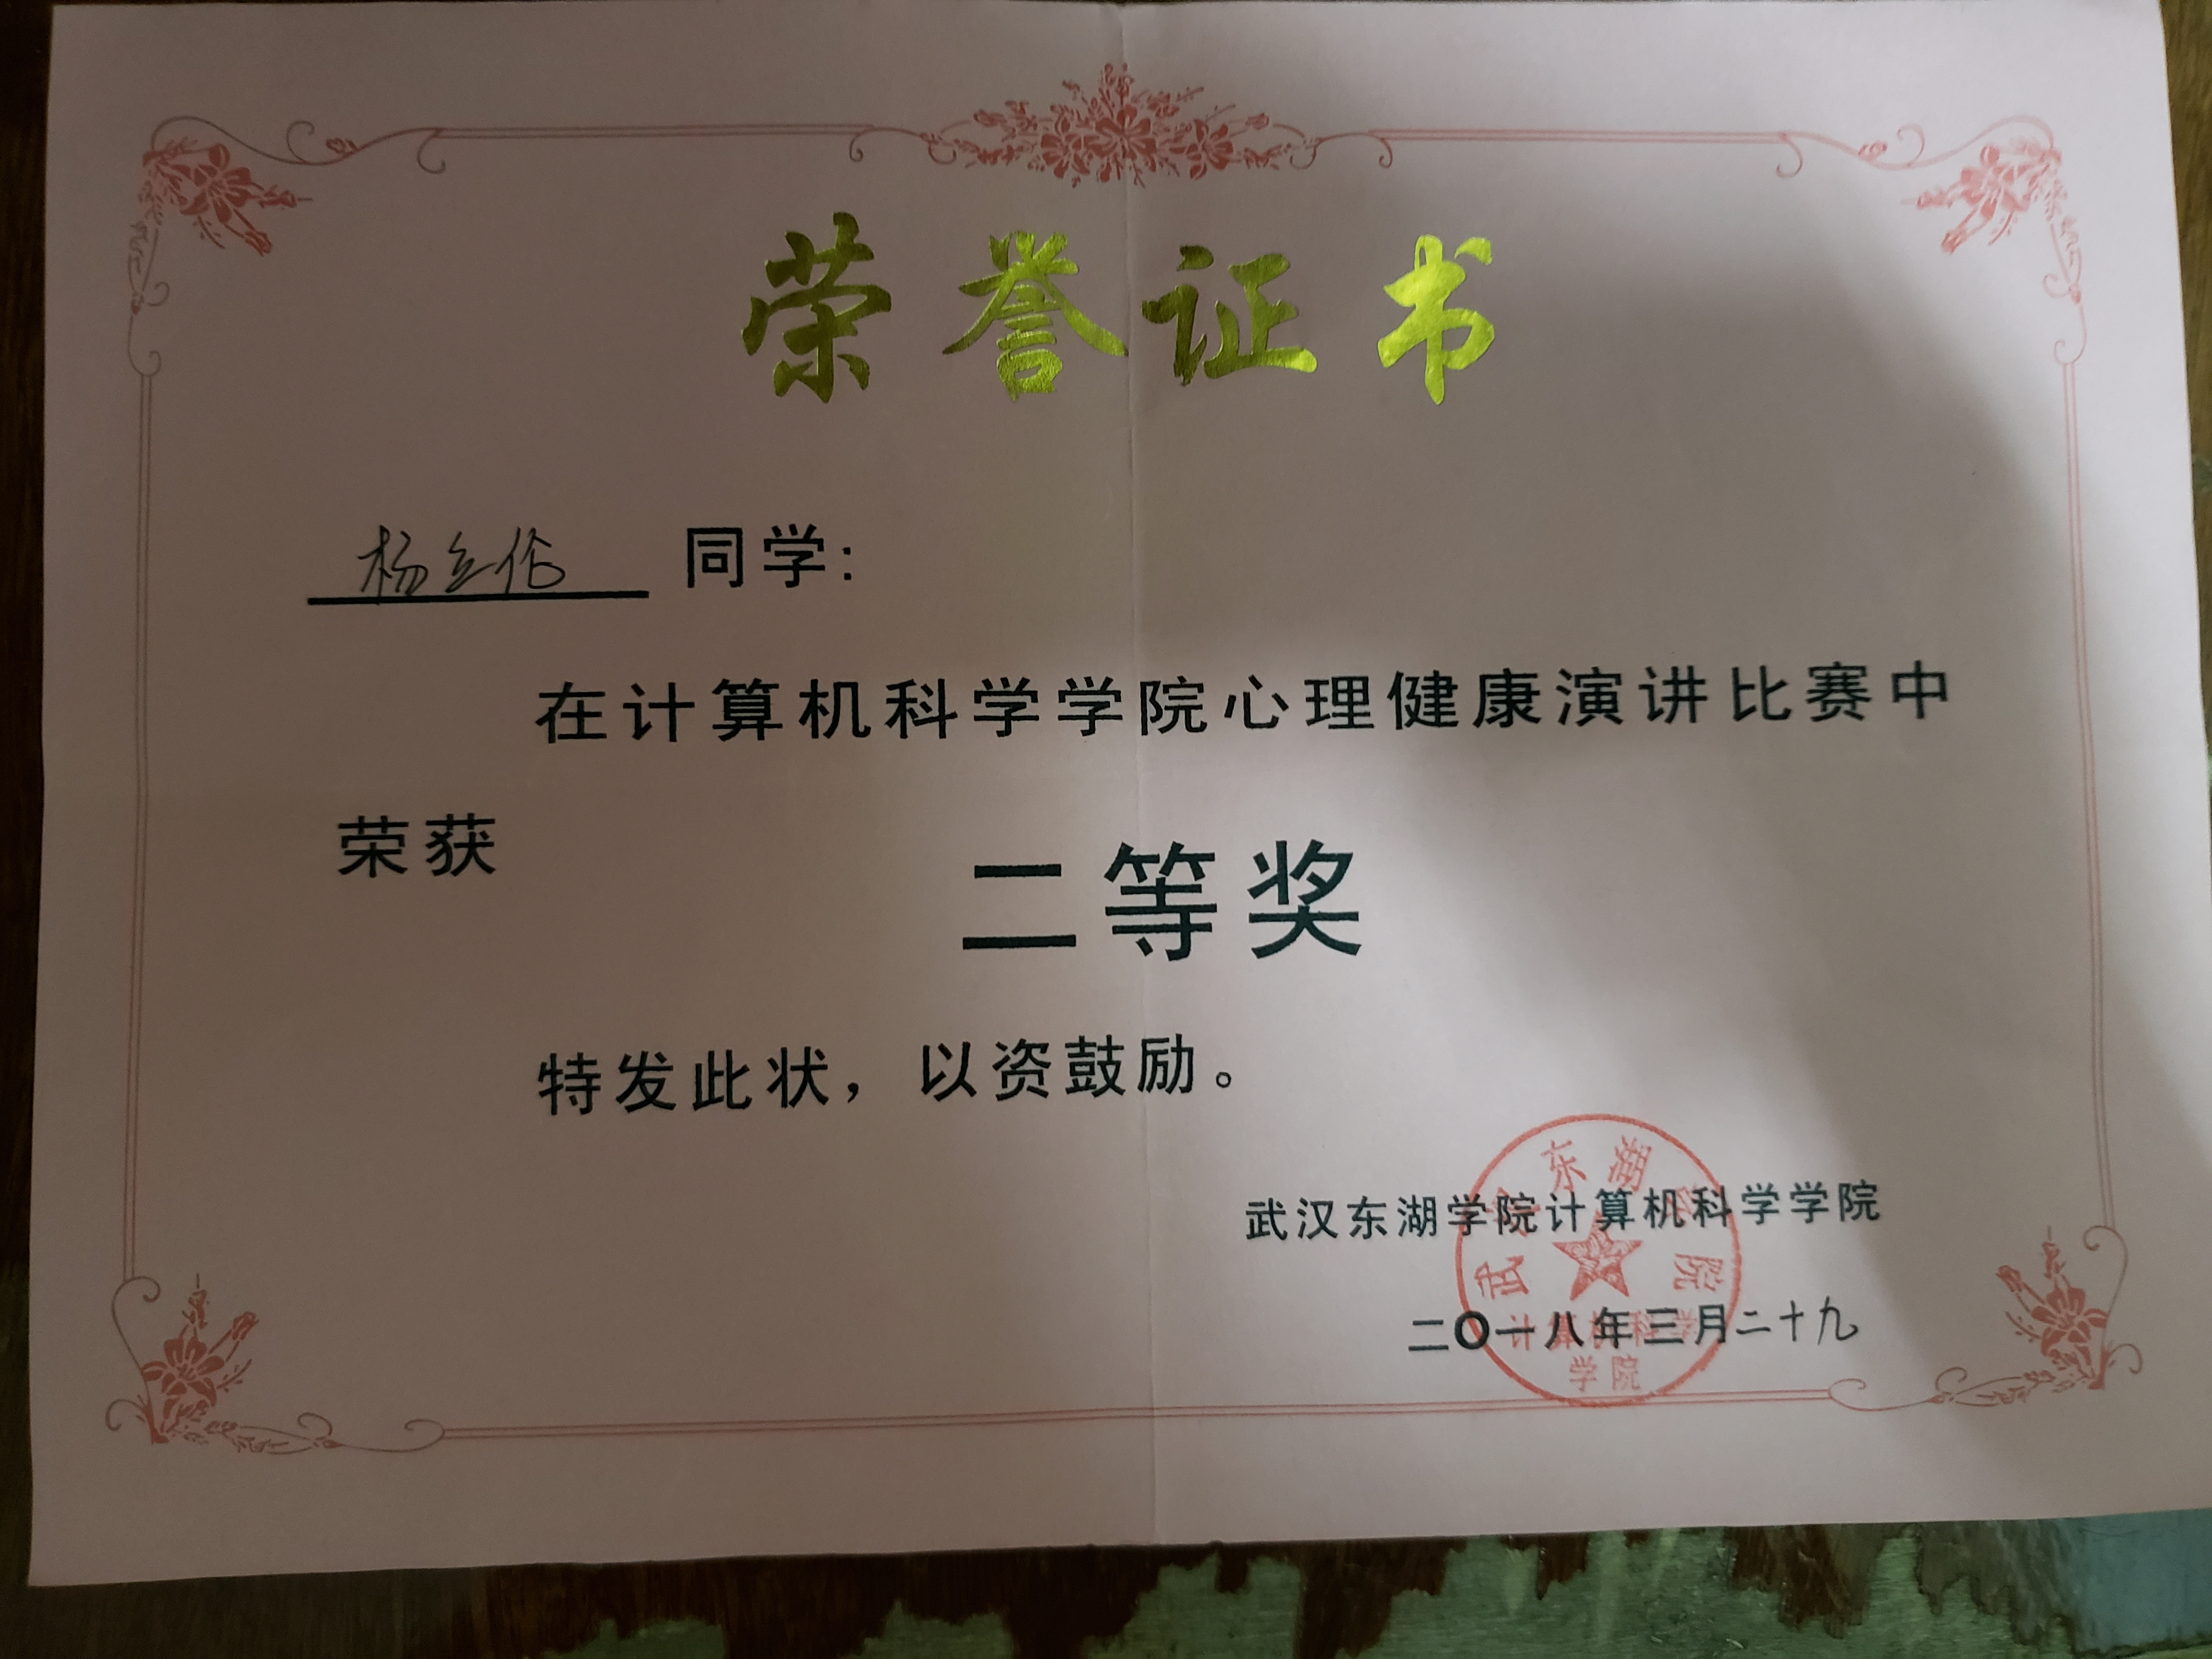 荣誉证书
杨立伦 同学:
在计算机科学学院心理健康演讲比赛中
荣获
二等奖
特发此状，以资鼓励。
武汉东湖学院计算机科学学院
二〇一八年三月二十九
武汉东湖学院
计算机科学
学院